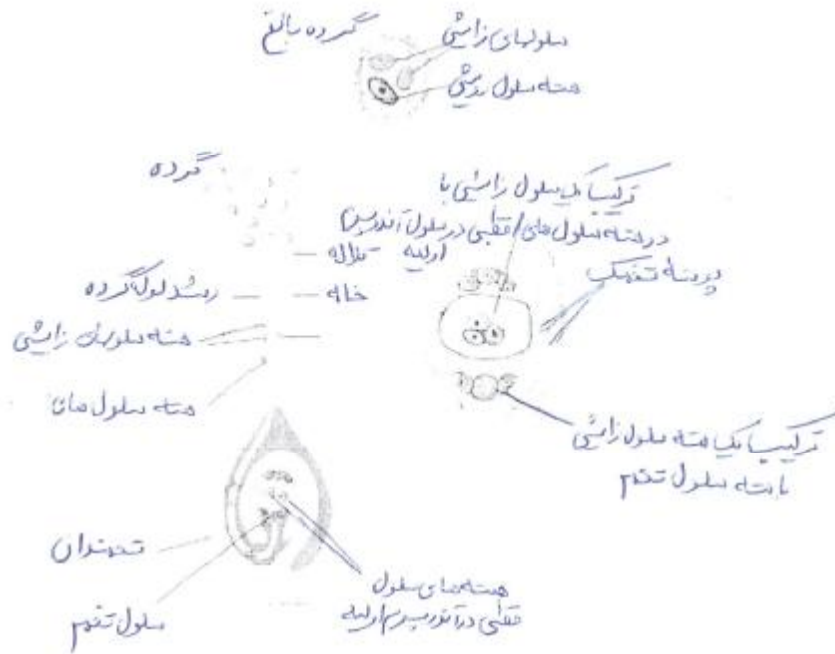 گرده بالغ
سلولهای زایشی
هسته سلول رویشی
گرده
ترکیب یک سلول زایشی با
در هسته سلول های قطبی در سلول آندوسپرم
اولیه
کلاله
پوسته تخمک
رشد لوله گرده
خامه
هسته سلولهای زایشی
هسته سلول
ترکیب یک هسته سلول زایشی
با هسته سلول تخم
تخمدان
سلول تخم
هسته های سلول
قطبی در آندوسپرم اولیه